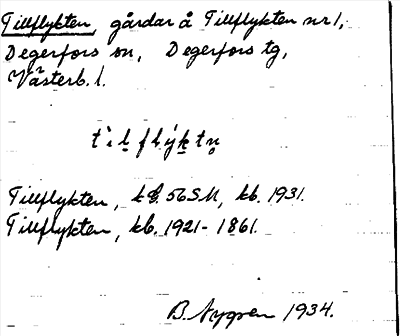 Tillflykten, gårdar å Tillflykten nr 1,
Degerfors sn, Degerfors tg,
Västerb. l.
Tillflykten, kb. 1931.
Tillflykten, kb. 1921-1861.
B. Nygren 1934.